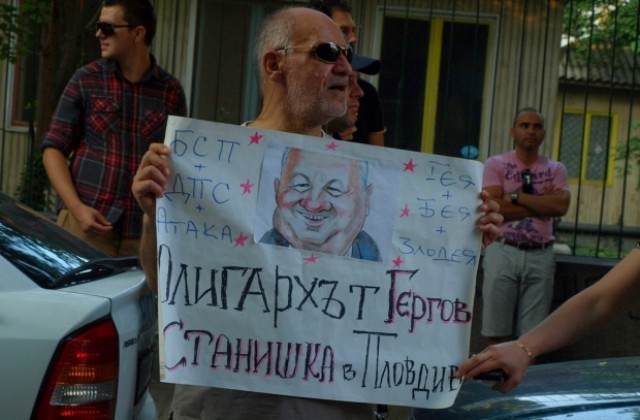 БСП
+
ДПС
+
АТАКА
ГЕЯ
+
БЕЯ
+
ЗЛОДЕЯ
ОЛИГАРХЪТ ГЕРГОВ
СТАНИШКА в ПЛОВДИВ